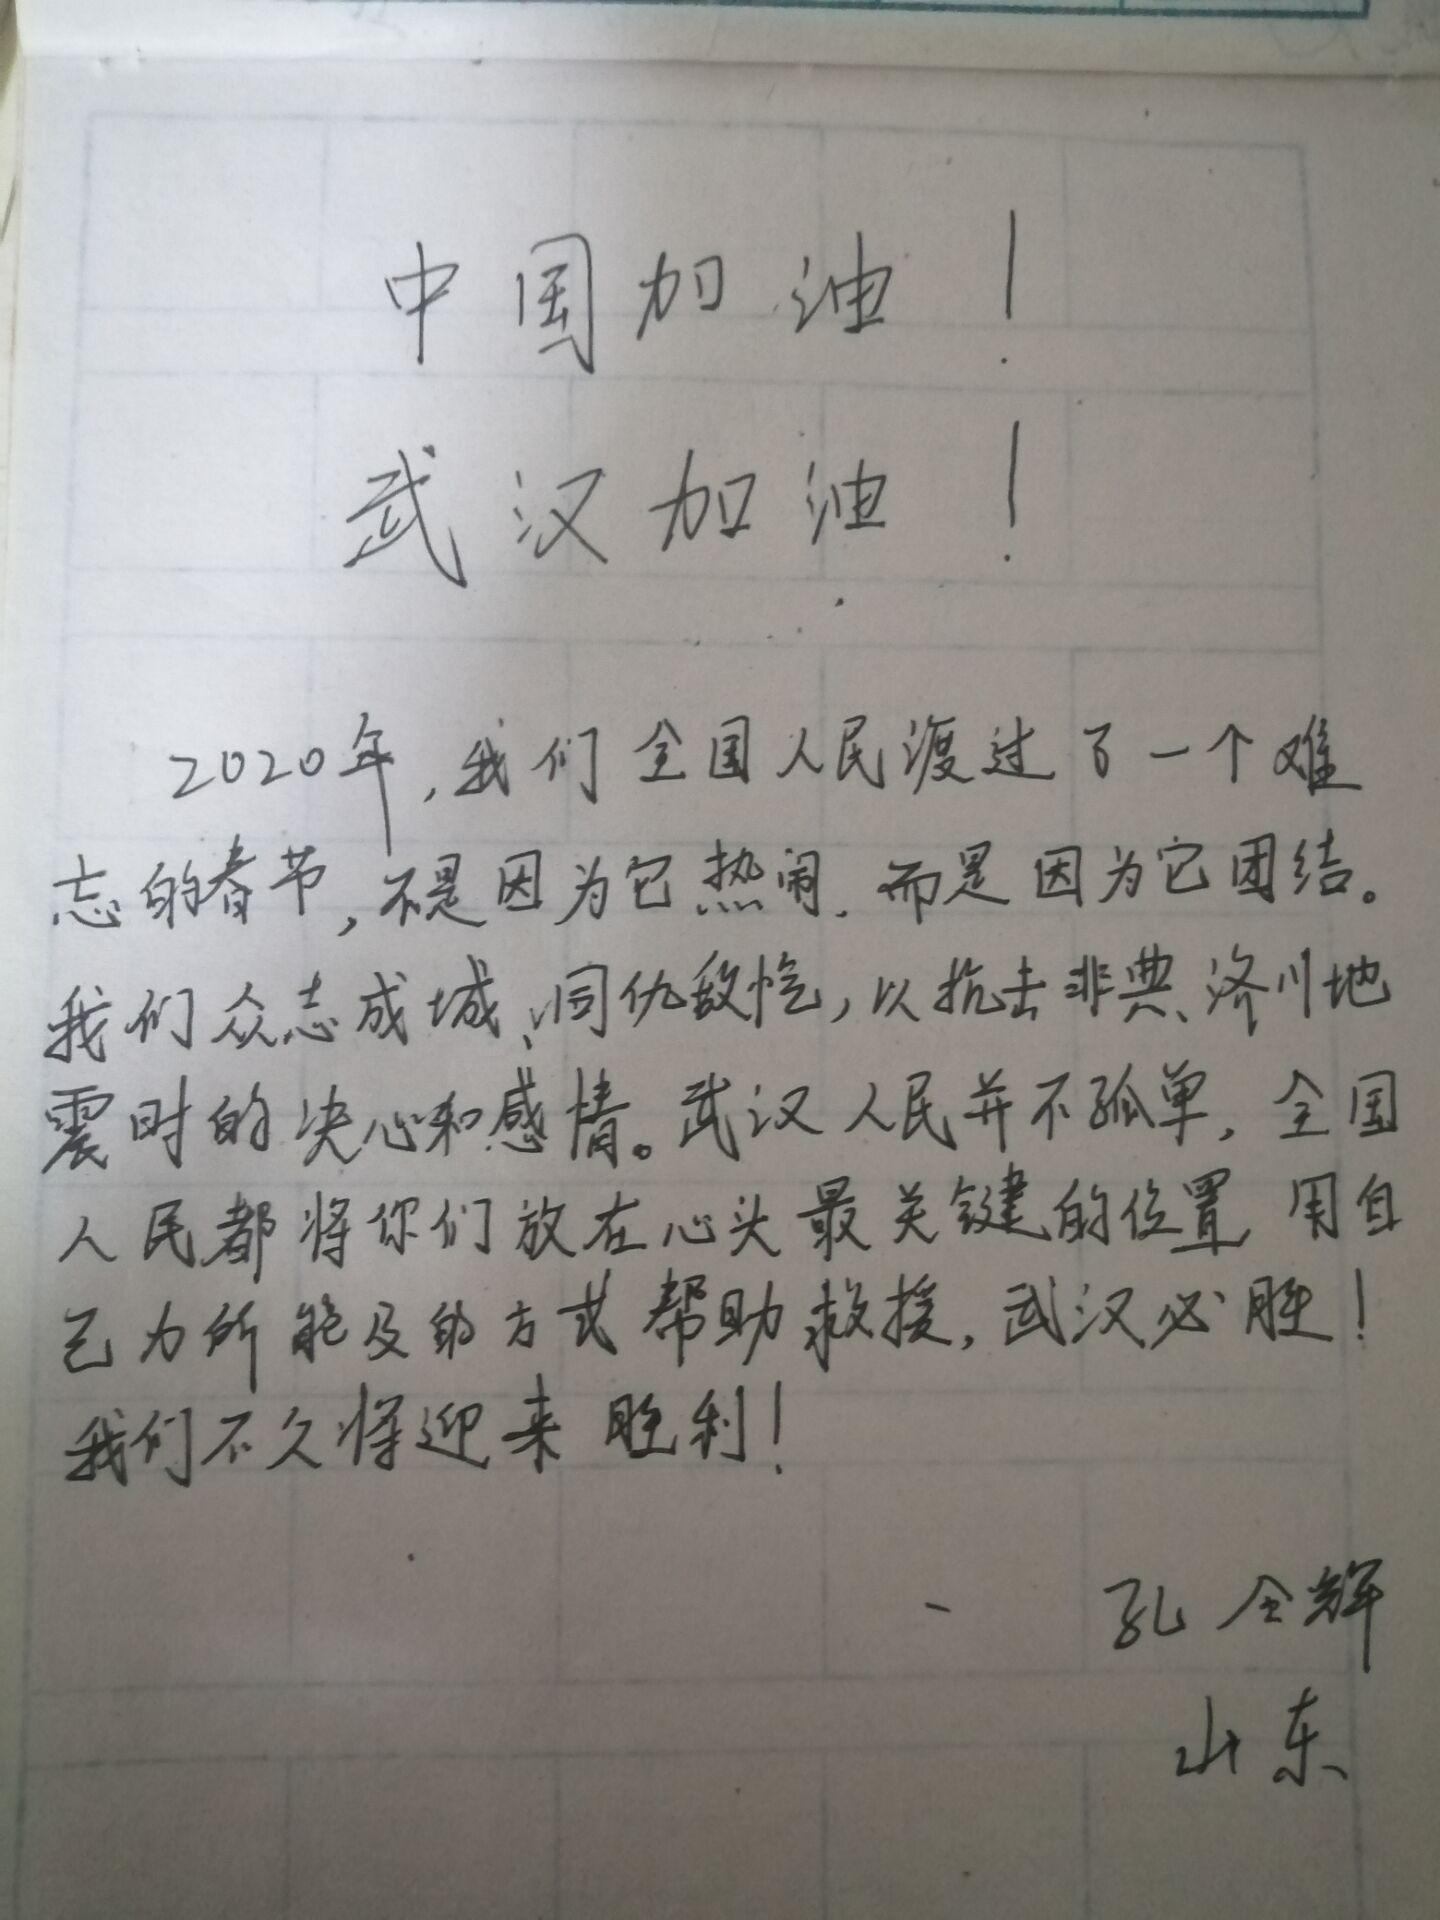 中国加油！
武汉加油！
2020年，我们全国人民渡过了一个难
忘的春节，不是因为它热闹，而是因为它团结。
我们众志成城、同仇敌忾，以抗击非典、汶川地
震时的决心和感情。武汉人民并不孤单，全国
人民都将你们放在心头最关键的位置，用自
己力所能及的方式帮助救援，武汉必胜！
我们不久将迎来胜利！
孔令辉
山东